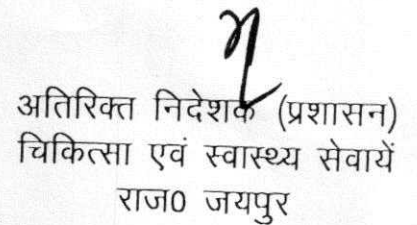 अतिरिक्त निदेशक (प्रशासन)
चिकित्सा एवं स्वास्थ्य सेवायें
राज0 जयपुर